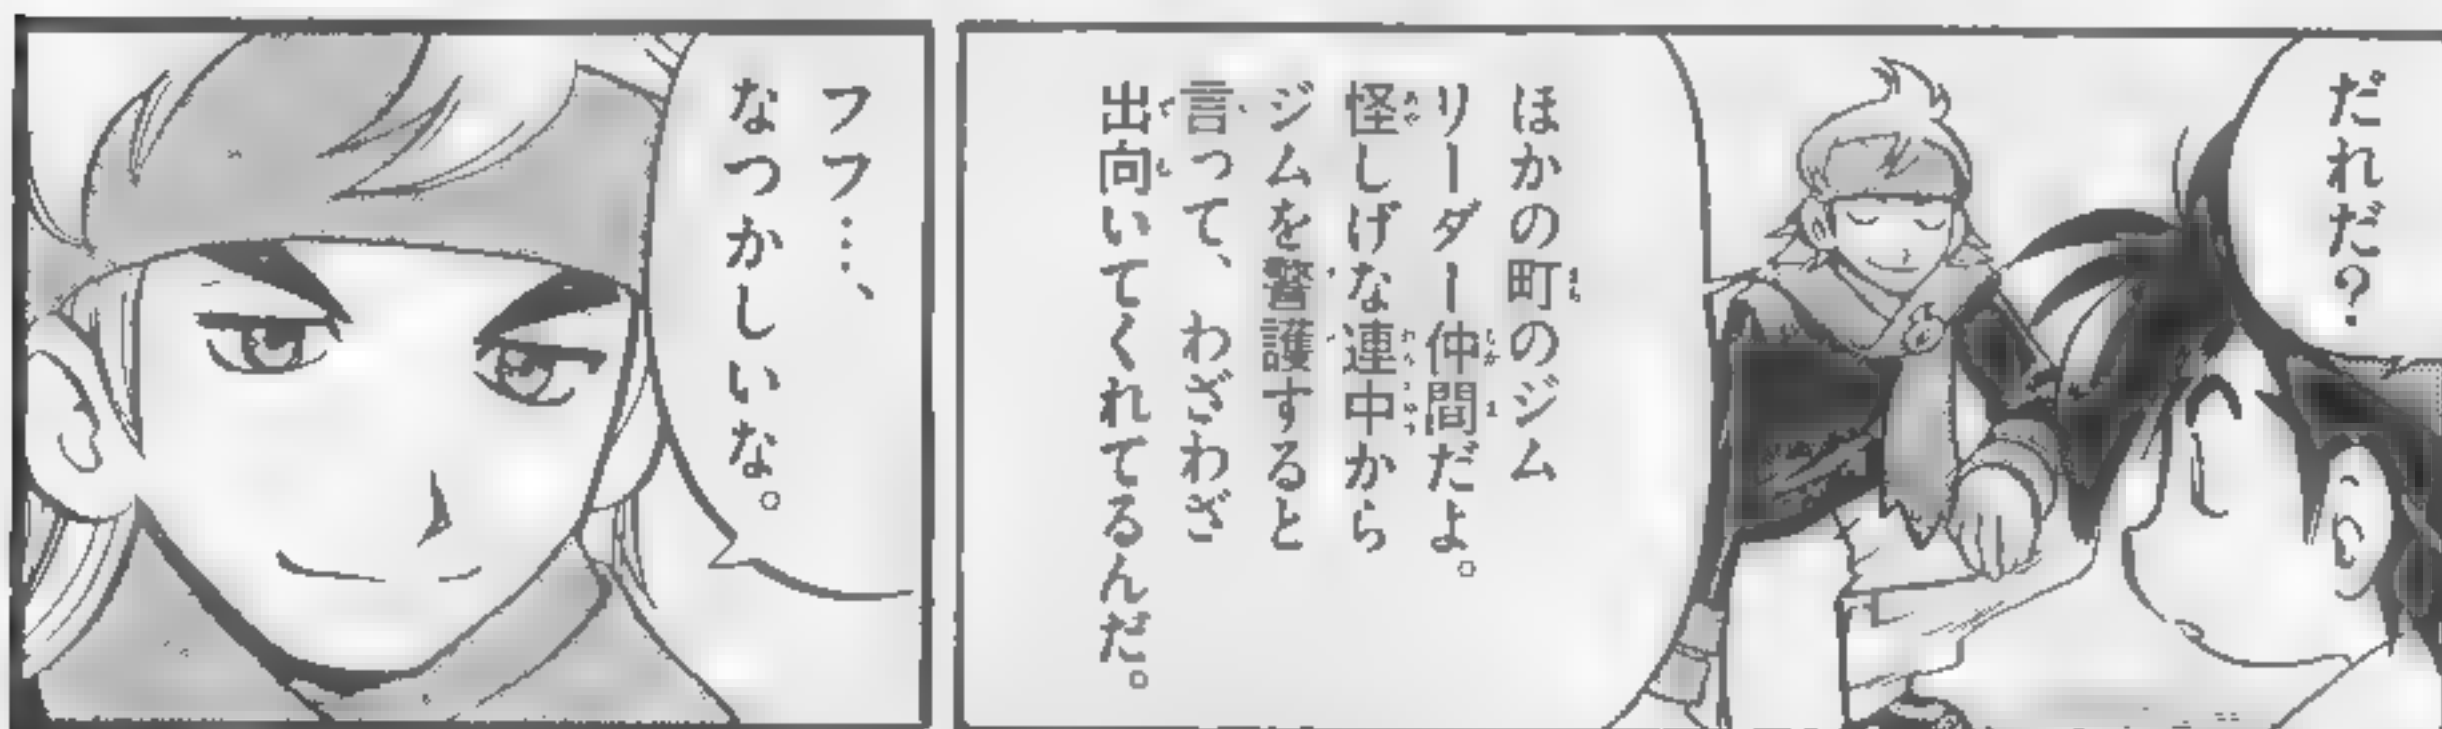 だれだ？
ほかの町のジム
リーダー仲間だよ。
怪しげな連中から
ジムを警護すると
言って、わざわざ
出向いてくれてるんだ。
フフ…、
なつかしいな。